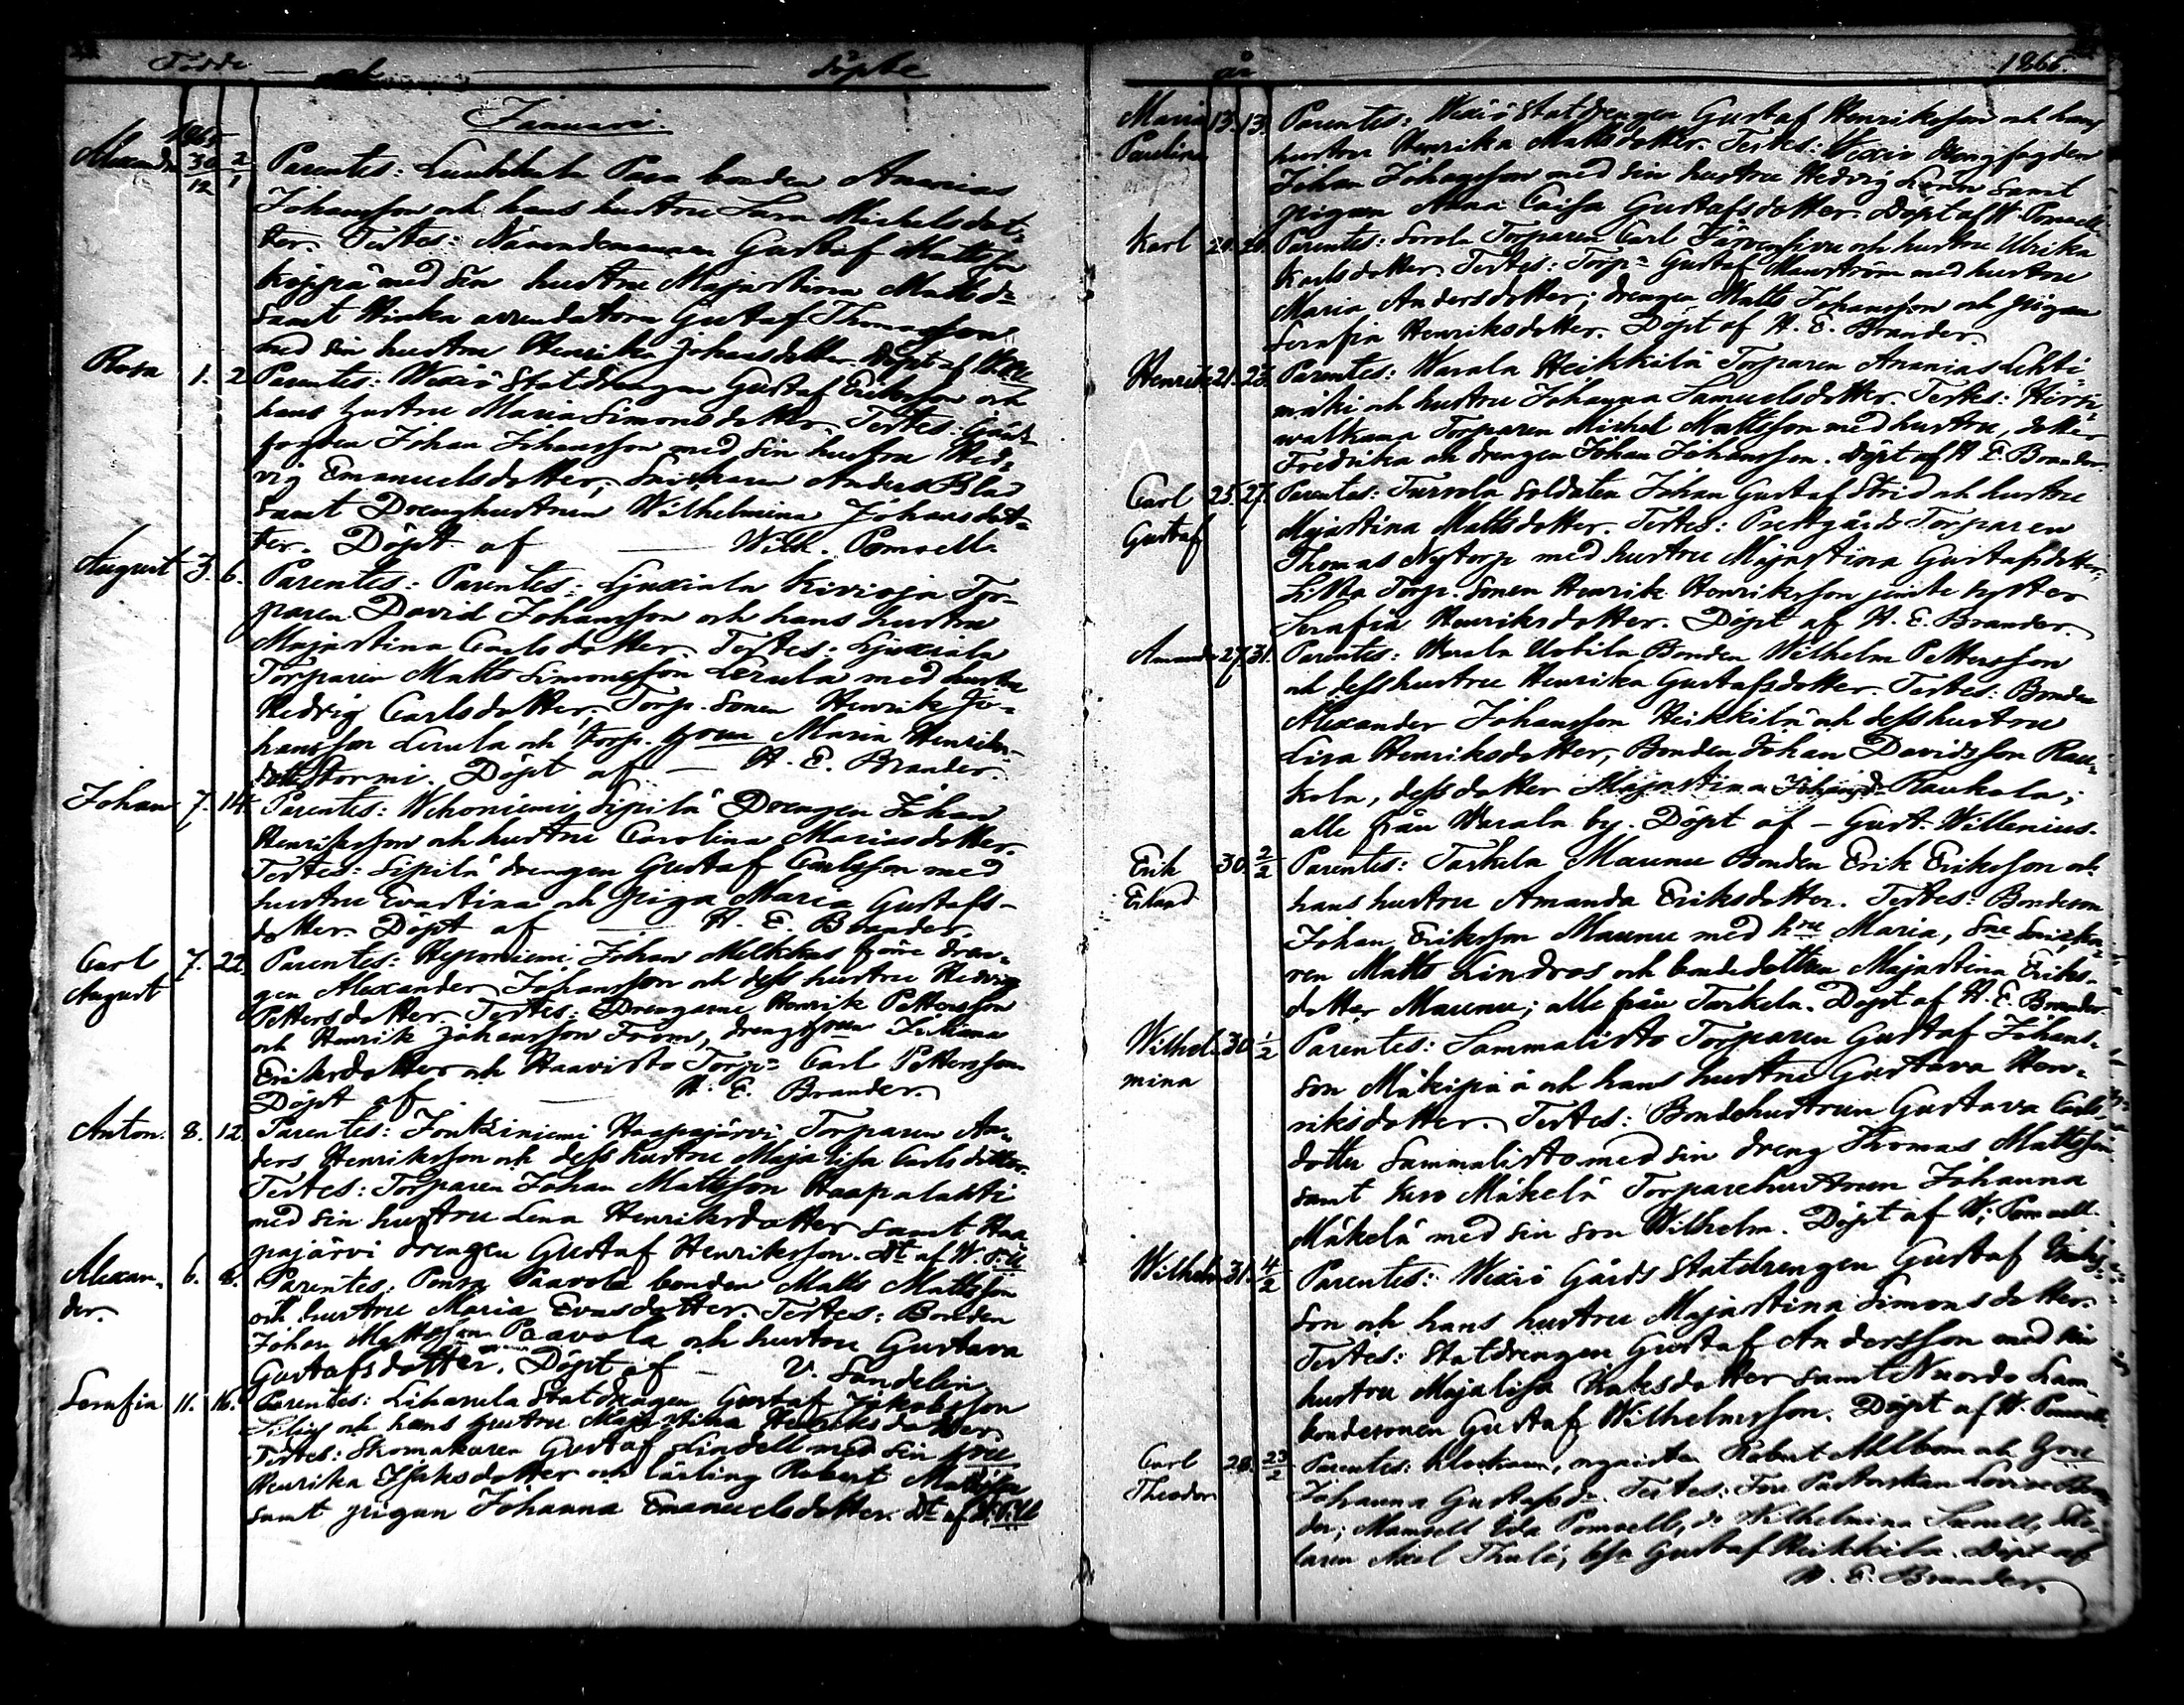 Födde och döpte
Januari.
1865
Alexander 30/12 2/1 Parentes: Luukkala Pava bonden Ananias
Johansson och hans hustru Sara Michelsdot-
ter. Testes: Nämndemannen Gustaf Mattsson
Köppä med sin hustru Majastina Mattsdr
samt Hinka arrendatorn Gustaf Thomasson
med sin hustru Henrika Johansdotter. Döpt af
Rosa 1. 2 Parentes: Wexiö Statdrengen Gustaf Eriksson och
hans hustru Maria Simonsdotter. Testes: Gårds
fogden Johan Johansson med sin hustru Hed-
vig Emanuelsdotter; Snickaren Anders Blad
samt Drenghustrun Wilhelmina Johansdot-
ter. Döpt af — Wilh. Pomoell.
August 3. 6. Parentes: Parentes: Ljuxiala Kivioja Tor-
paren David Johansson och hans hustru
Majastina Carlsdotter. Testes: Ljuxiala
Torparen Matts Simonsson Lerula med hustru
Hedvig Carlsdotter. Torp. Sonen Henrik Jo-
hansson Lerula och Torp. hrun Maria Henriks-
dotter Stormi. Döpt af — H. E. Brander.
Johan 7. 14. Parentes: Wehoniemi Sipilä Drengen Johan
Henriksson och hustru Carolina Mariasdotter.
Testes: Sipilä drengen Gustaf Carlsson med
hustru Evastina och piga Maria Gustafs-
dotter. Döpt af — H. E. Brander.
Carl 7. 22. Parentes: Heponiemi Johan Melkkas före dren-
August gen Alexander Johansson och dess hustru Hedvig
Pettersdotter. Testes: Drengarne Henrik Pettersson
och Henrik Johansson From, drenghrun Justiina
Eriksdotter och Haavisto Torpn Carl Pettersson
Döpt af — H. E. Brander.
Anton. 8. 12. Parentes: Jontziniemi Haapajärvi Torparen An-
ders Henriksson och dess hustru Maja Lisa Carlsdotter.
Testes: Torparen Johan Mattsson Haapalahti
med sin hustru Lena Henriksdotter samt Haa
pajärvi drengen Gustaf Henriksson. Dt af W. P:ll
Alexan- 6. 8. Parentes: Ponsa Paavola bonden Matts Mattsson
der. och hustru Maria Evasdotter. Testes: Bonden
Johan Mattsson Paavola och hustru Gustava
Gustafsdotter. Döpt af — V. Sandelin
Serafia 11. 16. Parentes: Lihasula Statdrengen Gustaf Jakobsson
och hans hustru Majastina Henriksdotter.
Testes: Skomakaren Gustaf Lindell med sin hru
Henrika Isaksdotter och lärling Robert Mattsson
samt pigan Johanna Emanuelsdotter. Dt af W. P:ll
år 1866.
Maria 13. 13. Parentes: Wexiö Statdrengen Gustaf Henriksson och hans
Paulina hustru Henrika Mattsdotter. Testes: Wexiö Drengfogden
Johan Johansson med sin hustru Hedvig Lönn samt
pigan Anna Caisa Gustafsdotter. Döpt af W. Pomoell.
Karl 20. 20. Parentes: Sorola Torparen Carl Järvensivu och hustru Ulrika
Karlsdotter. Testes: Torpn Gustaf Maurström med hustru
Maria Andersdotter; drengen Matts Johansson och pigan
Serafia Henriksdotter. Döpt af H. E. Brander.
Henrik 21. 23. Parentes: Warala Heikkilä Torparen Ananias Lehti-
mäki och hustru Johanna Samuelsdotter. Testes:
walkama Torparen Michel Mattsson med hustru, dotter
Fredrika och drengen Johan Johansson. Döpt af H. E. Brander.
Carl 25. 27. Parentes: Tursola Soldaten Johan Gustaf Strid och hustru
Gustaf Majastina Mattsdotter. Testes: Prestgårds Torparen
Thomas Nytorp med hustru Majastina Gustafsdotter;
Torp. Sonen Henrik Henriksson jemte syster
Serafia Henriksdotter. Döpt af H. E. Brander.
Amanda 27. 31. Parentes: Warala Uotila Bonden Wilhelm Pettersson
och dess hustru Henrika Gustafsdotter. Testes: Bonden
Alexander Johansson Heikkilä och dess hustru
Lisa Henriksdotter, Bonden Johan Davidsson Rau-
kola, dess dotter Majastina Johansd. Raukola;
alle från Warala by. Döpt af — Gust. Willenius.
Erik 30. 2/2 Parentes: Tarkela Maunu Bonden Erik Eriksson och
Erland hans hustru Amanda Eriksdotter. Testes: Bondeson
Johan Eriksson Maunu med hru Maria, Snickа-
ren Matts Lindros och bondedottern Majastina Eriks-
dotter Maunu; alle från Tarkela. Döpt af H. E. Brander
Wilhel- 30. 1/2 Parentes: Sammalisto Torparen Gustaf Johans-
mina son Mäkipää och hans hustru Gustava Hen-
riksdotter. Testes: Bondehustrun Gustava Carls-
dotter Sammalisto med sin dreng Thomas Mattsson
samt Mäkelä Torparehustrun Johanna
Mäkelä med sin son Wilhelm. Döpt af W. Pomoell
Wilhelm 31. 4/2 Parentes: Wexiö Gårds Statdrengen Gustaf
son och hans hustru Majastina Simonsdotter.
Testes: Statdrengen Gustaf Andersson med sin
hustru Majalisa Isaksdotter samt
bondesonen Gustaf Wilhelmsson. Döpt af W. Pomoell.
Carl 28. 23/2 Parentes: Klockaren, organisten Robert Ahlbom och hru
Theodor Johanna Gustafsdr. Testes: Fru Pastorskan Lovise Bran-
der; Mamsell Ida Pomoell, do Wilhelmina
Axel Thulé, Gustaf Heikkilä. Döpt af
H. E. Brander.